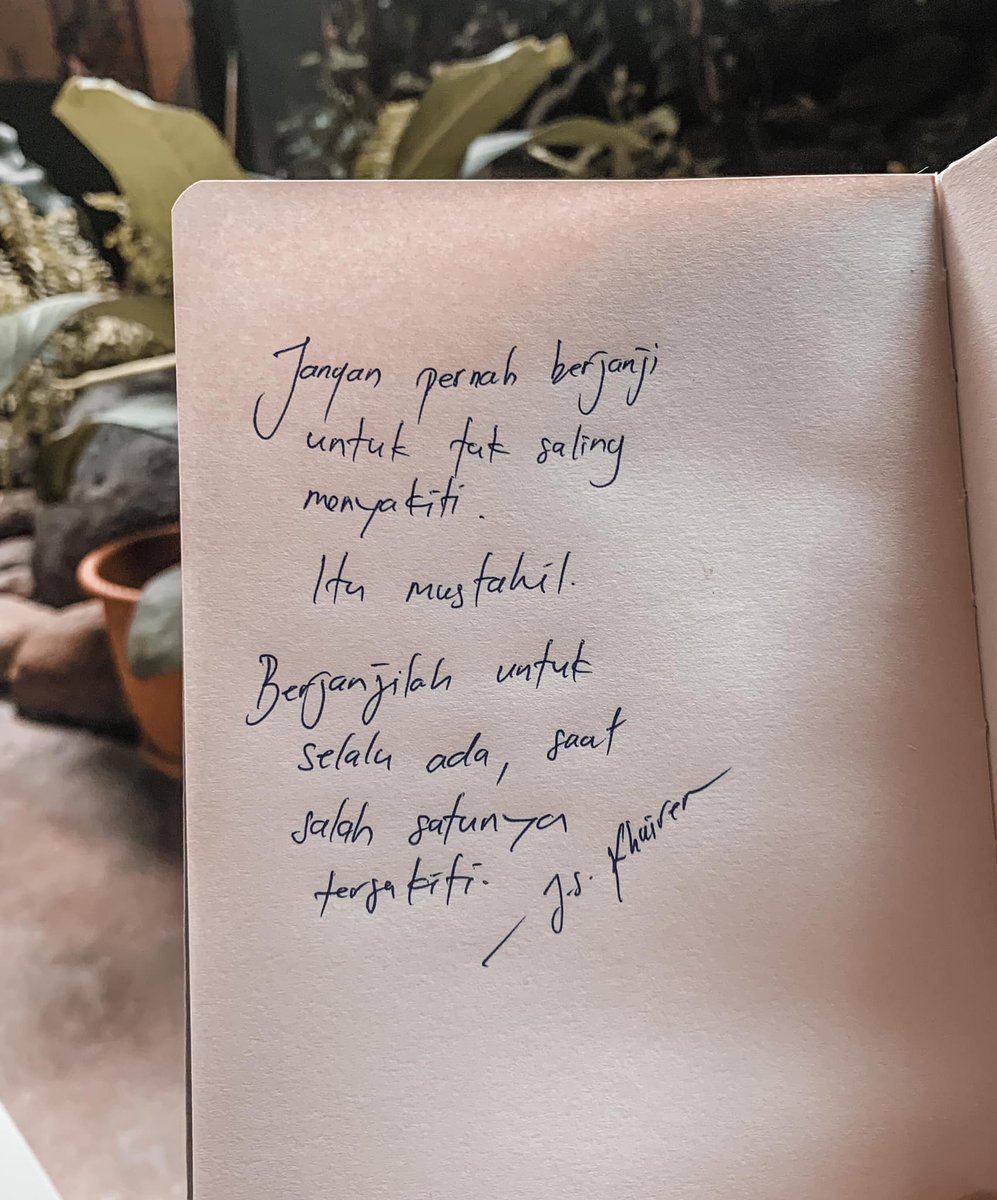 Jangan pernah berjanji
untuk tak saling
menyakiti.
Itu mustahil.
Berjanjilah untuk
selalu ada, saat
salah satunya
tersakiti.
— J.S. Khairen